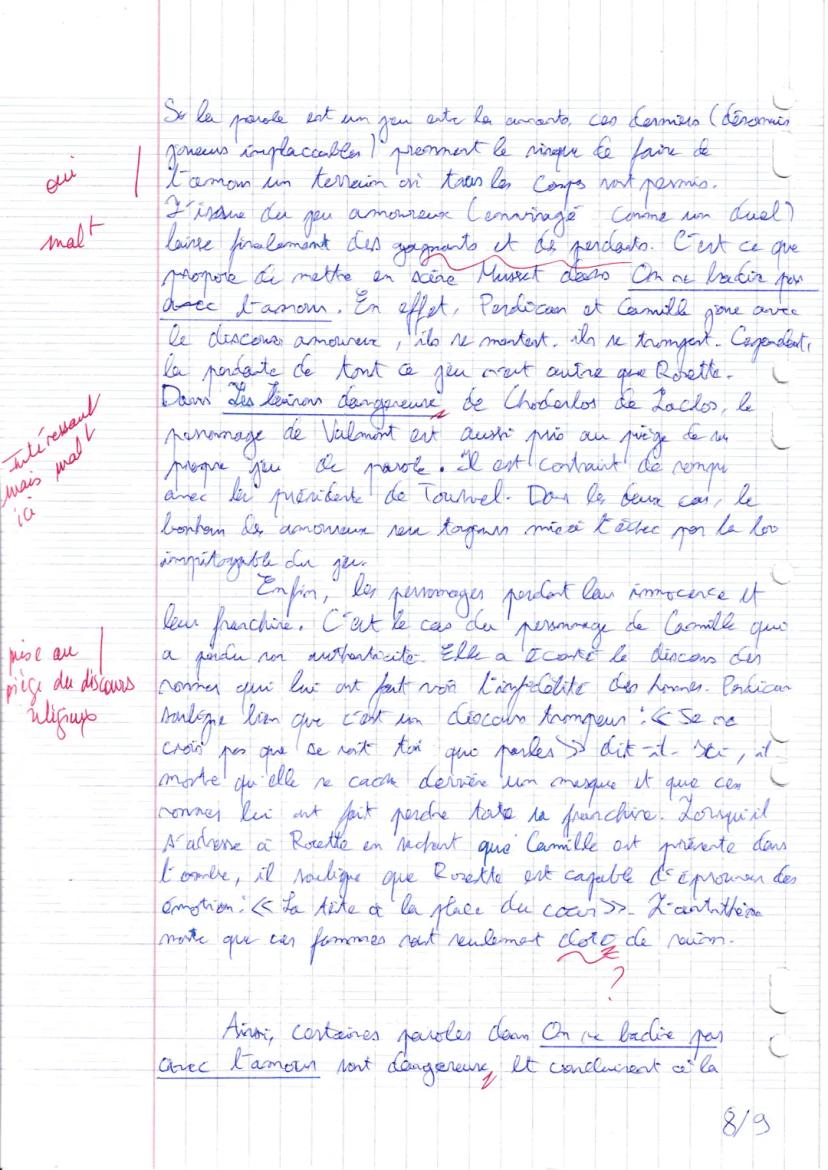 Si la parole est un jeu entre les amants, ces derniers (désormais
joueurs implaccables) prennent le risque de faire de
l'amour un terrain où tous les coups sont permis.
L'issue du jeu amoureux (envisagé comme un duel)
laisse finalement des gagnants et des perdants. C'est ce que
propose de mettre en scène Musset dans On ne badine pas
avec l'amour. En effet, Perdican et Camille joue avec
le discours amoureux, ils se mentent, ils se trompent. Cependant,
la perdante de tout ce jeu n'est autre que Rosette.
Dans Les liaisons dangereuse de Choderlos de Laclos, le
personnage de Valmont est aussi pris au piège de son
propre jeu de parole. Il est contraint de rompre
avec la présidente de Tourvel. Dans les deux cas, le
bonheur des amoureux sera toujours mis à l'échec par la loi
impitoyable du jeu.
Enfin, les personnages perdent leur innocence et
leur franchise. C'est le cas du personnage de Camille qui
a perdu son authenticité. Elle a écouté le discours des
nonnes qui lui ont fait voir l'infidélité des hommes. Perdican
souligne bien que c'est un discours trompeur : « Je ne
crois pas que se soit toi qui parles » dit-il. Ici, il
montre qu'elle se cache derrière un masque et que ces
nonnes lui ont fait perdre toute sa franchise. Lorsqu'il
s'adresse à Rosette en sachant que Camille est présente dans
l'ombre, il souligne que Rosette est capable d'éprouver des
émotion : « La tête à la place du cœur ». L'antithèse
montre que ces femmes sont seulement doté de raison.
Ainsi, certaines paroles dans On ne badine pas
avec l'amour sont dangereuse et conduisent à la
8/9
oui
malt
Intéressant
mais malt
ici
mise au
piège du discours
religieux
?